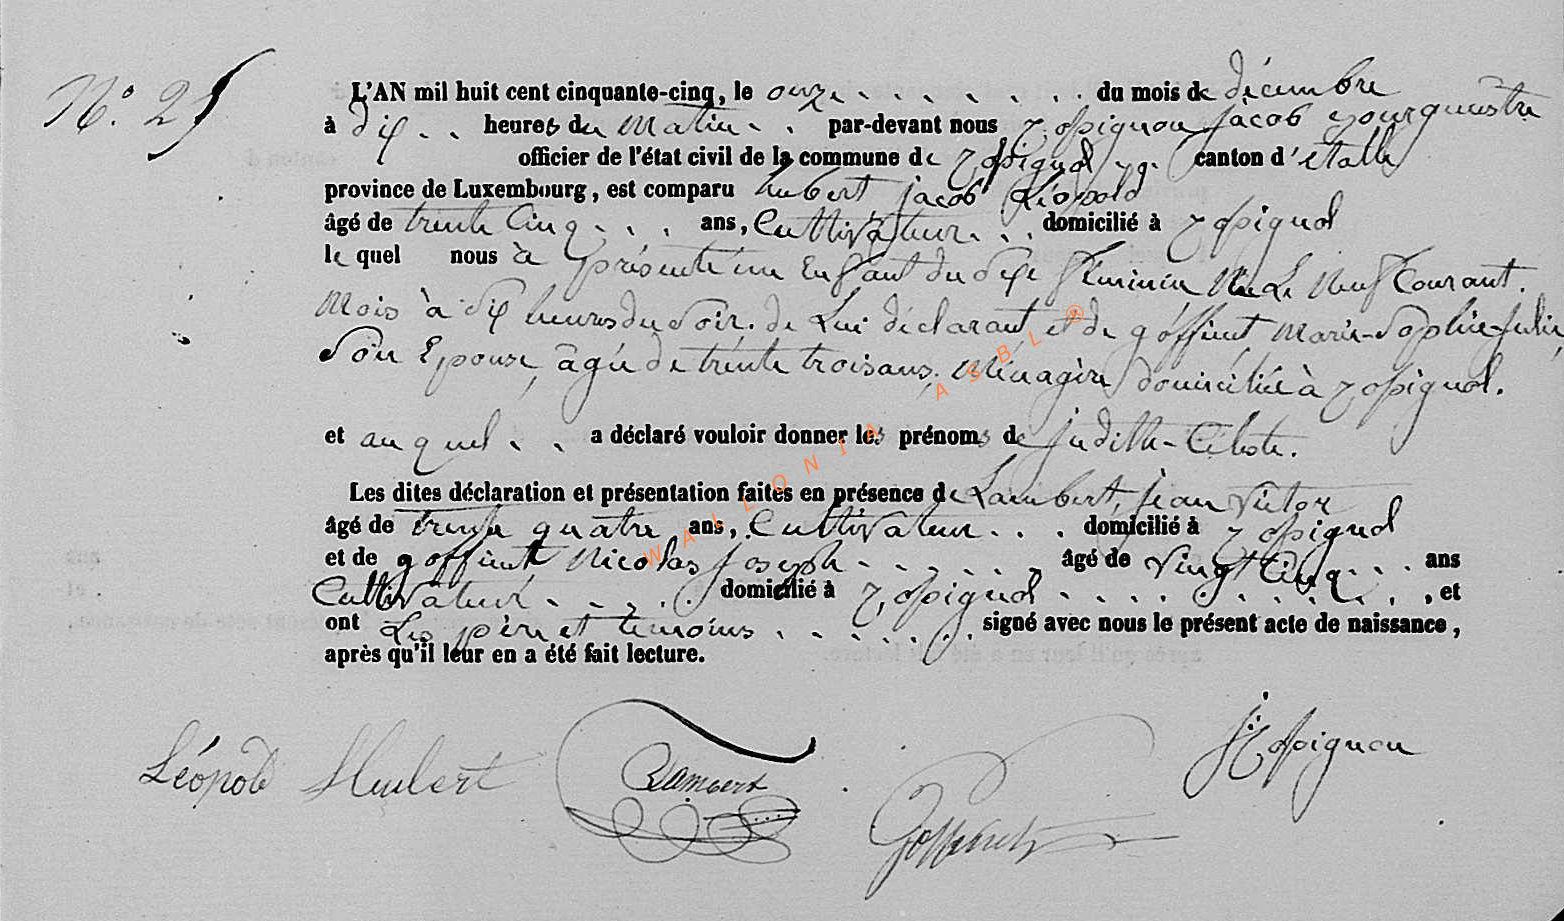 N.° 25
L'AN mil huit cent cinquante-cinq, le onze du mois de décembre
à dix heures du matin par-devant nous Rossignon jacob bourguestre
officier de l'état civil de la commune de Rossignol canton d'étalle
province de Luxembourg, est comparu hubert jacob Léopold
âgé de trente Cinq ans, Cultivateur domicilié à Rossignol
le quel nous à présenté un Enfant du Sexe féminin Née Le Neuf Courant.
Mois à dix heures du Soir. de Lui déclarant et de goffinet Marie-Sophie-Julie,
Son Epouse, âgée de trente trois ans, Ménagère domiciliée à Rossignol.
et auquel a déclaré vouloir donner les prénoms de judith-Céleste.
Les dites déclaration et présentation faites en présence de Lambert, jean Victor
âgé de trente quatre ans, Cultivateur domicilié à Rossignol
et de goffinet Nicolas joseph âgé de vingt Cinq ans
Cultivateur domicilié à Rossignol, et
ont Les père et témoins signé avec nous le présent acte de naissance,
après qu'il leur en a été fait lecture.
Léopold Hubert Lambert Goffinet J Rossignon
WALLONIA ASBL ®